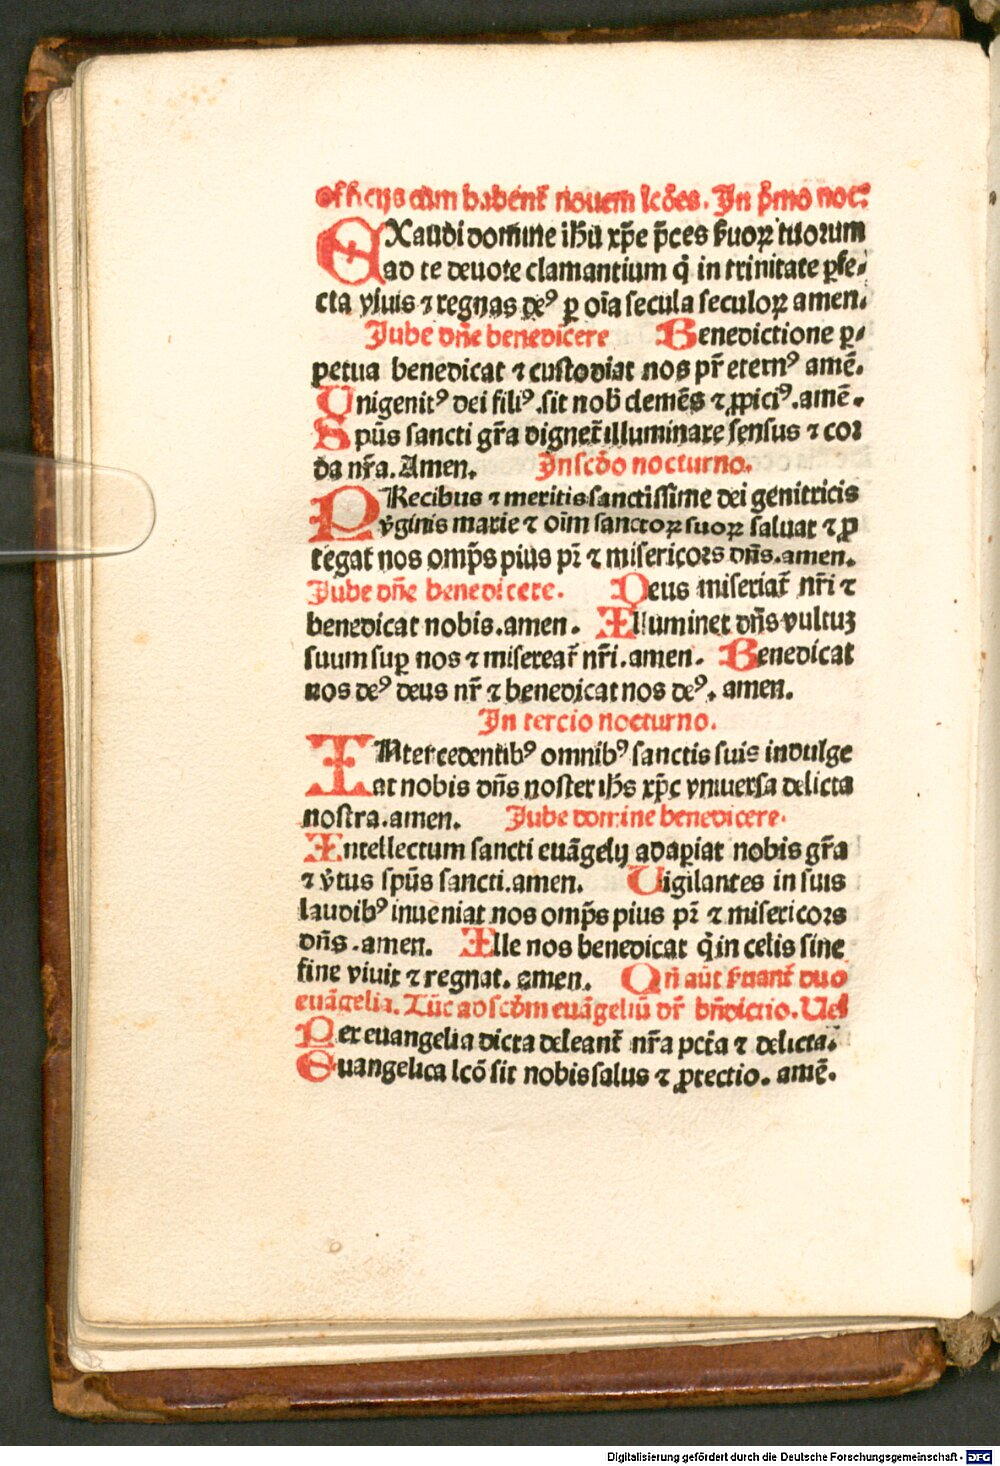 officijs cum habent᷑ nouem lcōes. In pͥmo noct᷑
EXaudi domine ihū xp̄e p̄ces ẜuoꝝ tuorum
ad te deuote clamantium q̇ in trinitate ꝑfe⸗
cta viuis ⁊ regnas deꝰ ꝑ oīa secula seculoꝝ amen.
Jube dn̄e benedicere Benedictione ꝑ⸗
petua benedicat ⁊ custodiat nos pr̄ eternꝰ amē.
Unigenitꝰ dei filiꝰ .sit nob̄ clemēs ⁊ ꝓpiciꝰ.amē.
Spūs sancti gr̄a dignet᷑ illuminare sensus ⁊ cor
da nr̄a. Amen. In scd̄o nocturno.
PRecibus ⁊ meritis sanctissime dei genitricis
vġinis marie ⁊ oīm sanctoꝝ suoꝝ saluat ⁊ ꝓ
tegat nos omp̄s pius pr̄ ⁊ misericors dn̄s.amen.
Jube dn̄e benedicere. Deus miseriat᷑ nr̄i ⁊
benedicat nobis.amen. Illuminet dn̄s vultuꝫ
suum suꝑ nos ⁊ misereat᷑ nr̄i.amen. Benedicat
nos deꝰ deus nr̄ ⁊ benedicat nos deꝰ. amen.
In tercio nocturno.
INtercedentibꝰ omnibꝰ sanctis suis indulge
at nobis dn̄s noster ihs̄ xp̄c vniuersa delicta
nostra.amen. Jube domine benedicere.
Intellectum sancti euāgelij adaꝑiat nobis gr̄a
⁊ v̇tus spūs sancti.amen. Uigilantes in suis
laudibꝰ inueniat nos omp̄s pius pr̄ ⁊ misericors
dn̄s .amen. Ille nos benedicat q̇ in celis sine
fine viuit ⁊ regnat. amen. Qn̄ aūt ẜuant᷑ duo
euāgelia. Tūc ad scd̄m euāgeliū dr̄ bn̄dictio. Uel
Per euangelia dicta deleant᷑ nr̄a pctā ⁊ delicta.
Euangelica lcō sit nobis salus ⁊ ꝓtectio. amē.
Digitalisierung gefördert durch die Deutsche Forschungsgemeinschaft - DFG